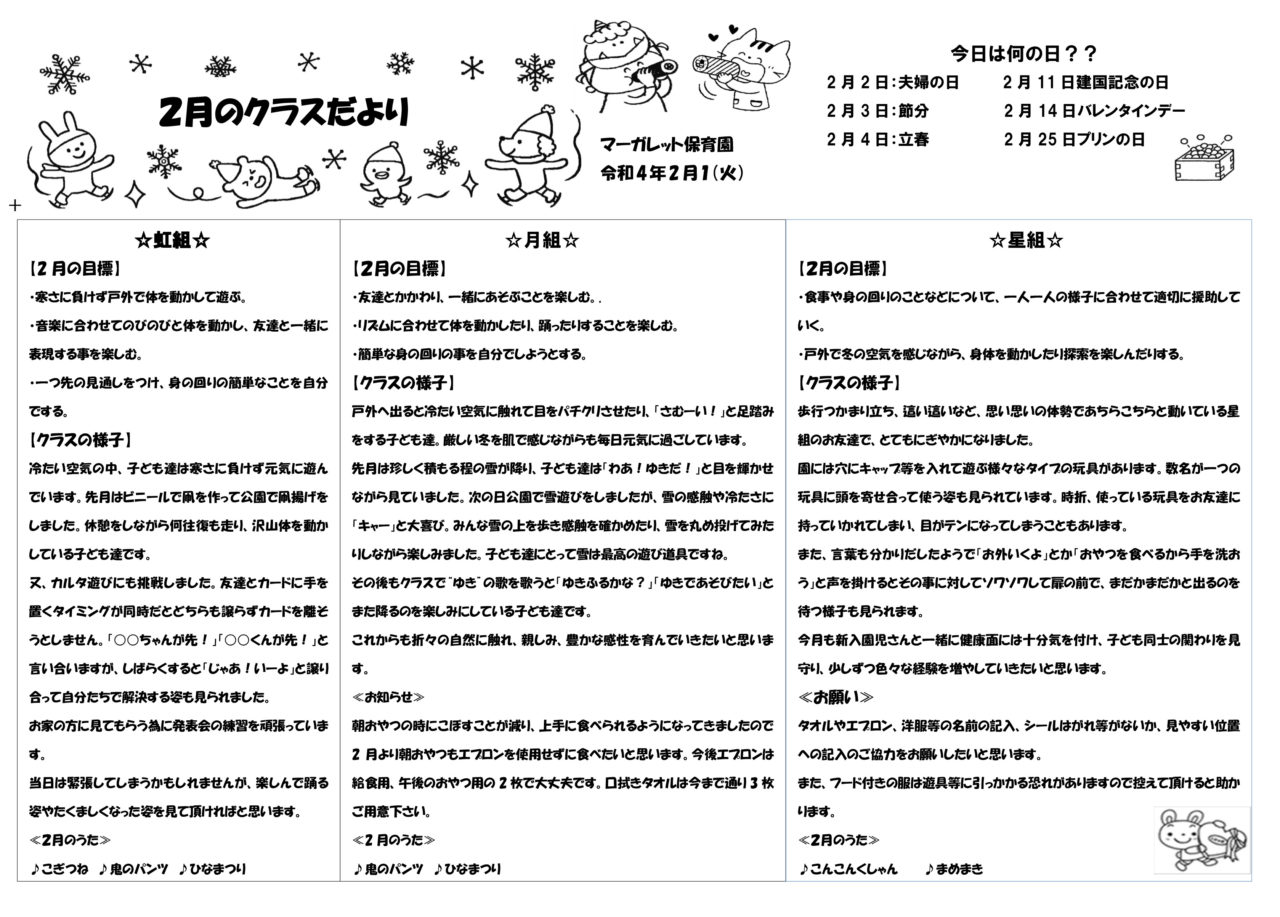 2月のクラスだより
マーガレット保育園
令和4年2月1(火)
今日は何の日??
2月2日:夫婦の日 2月11日建国記念の日
2月3日:節分 2月14日バレンタインデー
2月4日:立春 2月25日プリンの日
☆虹組☆
【2月の目標】
・寒さに負けず戸外で体を動かして遊ぶ。
・音楽に合わせてのびのびと体を動かし、友達と一緒に
表現する事を楽しむ。
・一つ先の見通しをつけ、身の回りの簡単なことを自分
でする。
【クラスの様子】
冷たい空気の中、子ども達は寒さに負けず元気に遊ん
でいます。先月はビニールで凧を作って公園で凧揚げを
しました。休憩をしながら何往復も走り、沢山体を動か
している子ども達です。
又、カルタ遊びにも挑戦しました。友達とカードに手を
置くタイミングが同時だとどちらも譲らずカードを離そ
うとしません。「○○ちゃんが先!」「○○くんが先!」と
言い合いますが、しばらくすると「じゃあ!いーよ」と譲り
合って自分たちで解決する姿も見られました。
お家の方に見てもらう為に発表会の練習を頑張っていま
す。
当日は緊張してしまうかもしれませんが、楽しんで踊る
姿やたくましくなった姿を見て頂ければと思います。
≪2月のうた≫
♪こぎつね ♪鬼のパンツ ♪ひなまつり
☆月組☆
【2月の目標】
・友達とかかわり、一緒にあそぶことを楽しむ。.
・リズムに合わせて体を動かしたり、踊ったりすることを楽しむ。
・簡単な身の回りの事を自分でしようとする。
【クラスの様子】
戸外へ出ると冷たい空気に触れて目をパチクリさせたり、「さむーい!」と足踏み
をする子ども達。厳しい冬を肌で感じながらも毎日元気に過ごしています。
先月は珍しく積もる程の雪が降り、子ども達は「わあ!ゆきだ!」と目を輝かせ
ながら見ていました。次の日公園で雪遊びをしましたが、雪の感触や冷たさに
「キャー」と大喜び。みんな雪の上を歩き感触を確かめたり、雪を丸め投げてみた
りしながら楽しみました。子ども達にとって雪は最高の遊び道具ですね。
その後もクラスで"ゆき"の歌を歌うと「ゆきふるかな?」「ゆきであそびたい」と
また降るのを楽しみにしている子ども達です。
これからも折々の自然に触れ、親しみ、豊かな感性を育んでいきたいと思いま
す。
≪お知らせ≫
朝おやつの時にこぼすことが減り、上手に食べられるようになってきましたので
2月より朝おやつもエプロンを使用せずに食べたいと思います。今後エプロンは
給食用、午後のおやつ用の2枚で大丈夫です。口拭きタオルは今まで通り3枚
ご用意下さい。
≪2月のうた≫
♪鬼のパンツ ♪ひなまつり
☆星組☆
【2月の目標】
・食事や身の回りのことなどについて、一人一人の様子に合わせて適切に援助して
いく。
・戸外で冬の空気を感じながら、身体を動かしたり探索を楽しんだりする。
【クラスの様子】
歩行つかまり立ち、這い這いなど、思い思いの体勢であちらこちらと動いている星
組のお友達で、とてもにぎやかになりました。
園には穴にキャップ等を入れて遊ぶ様々なタイプの玩具があります。数名が一つの
玩具に頭を寄せ合って使う姿も見られています。時折、使っている玩具をお友達に
持っていかれてしまい、目がテンになってしまうこともあります。
また、言葉も分かりだしたようで「お外いくよ」とか「おやつを食べるから手を洗お
う」と声を掛けるとその事に対してソワソワして扉の前で、まだかまだかと出るのを
待つ様子も見られます。
今月も新入園児さんと一緒に健康面には十分気を付け、子ども同士の関わりを見
守り、少しずつ色々な経験を増やしていきたいと思います。
≪お願い≫
タオルやエプロン、洋服等の名前の記入、シールはがれ等がないか、見やすい位置
への記入のご協力をお願いしたいと思います。
また、フード付きの服は遊具等に引っかかる恐れがありますので控えて頂けると助か
ります。
≪2月のうた≫
♪こんこんくしゃん ♪まめまき